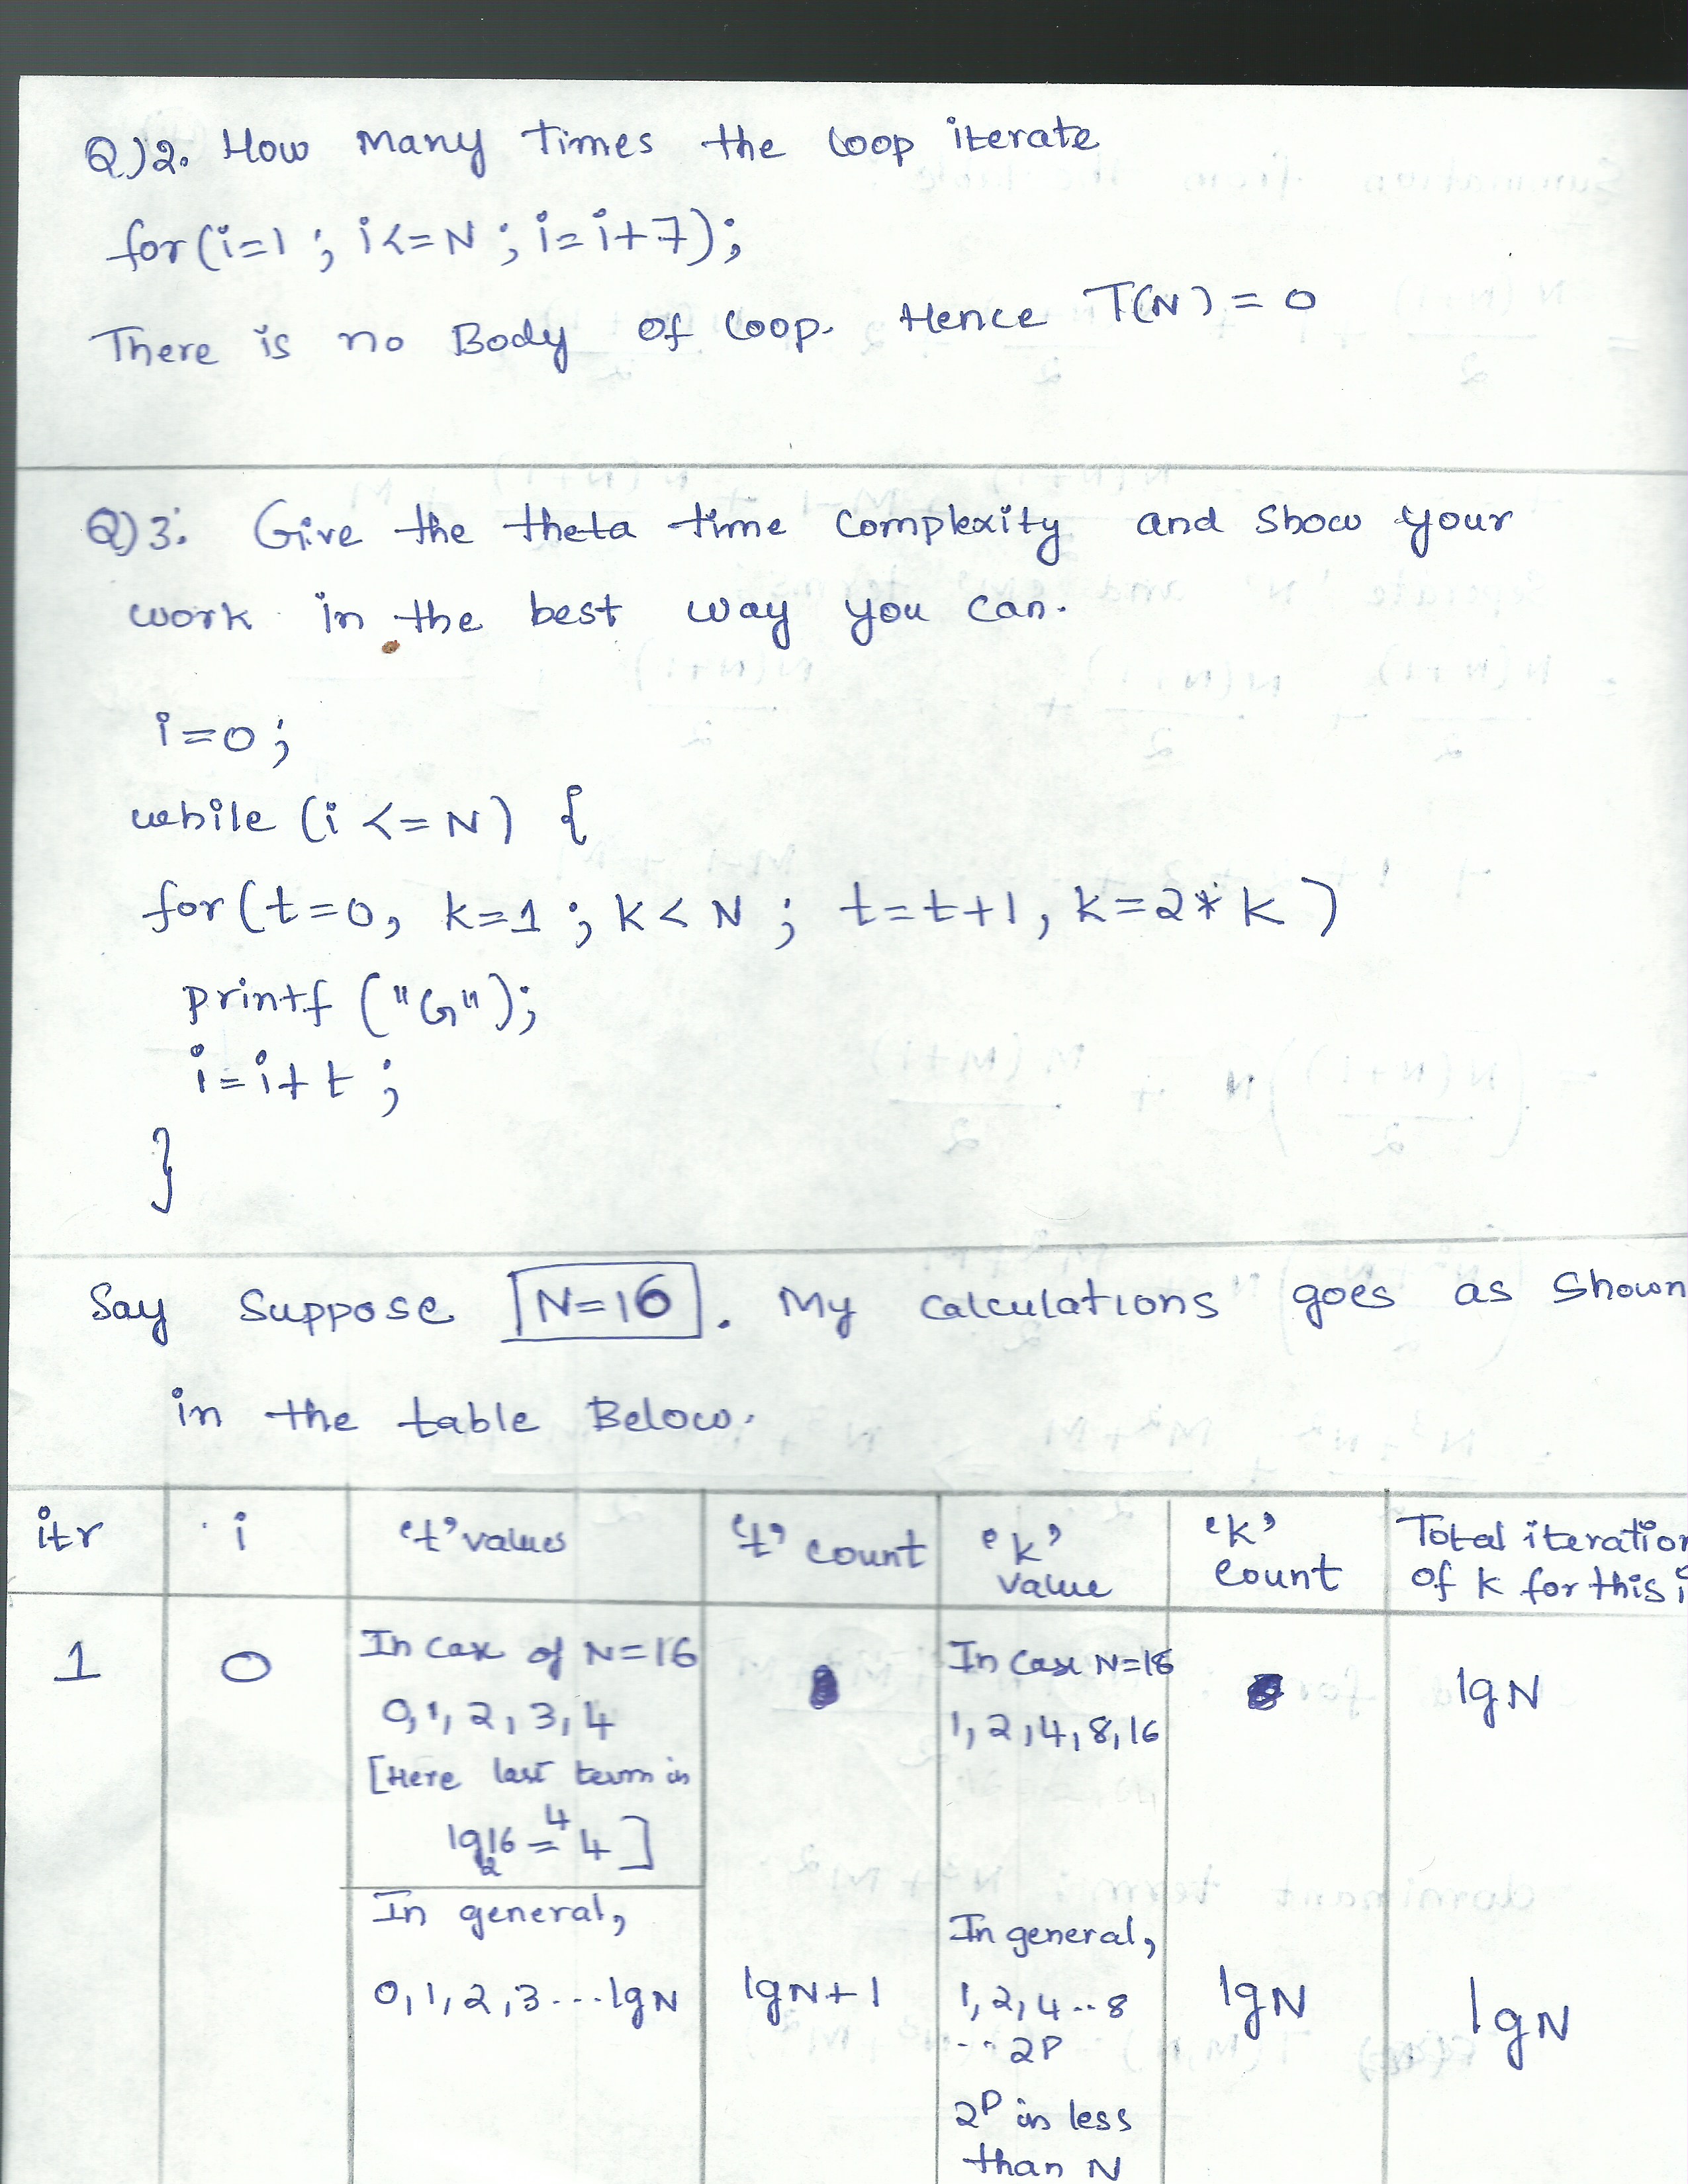 Q)2. How Many Times the loop iterate
for(i=1 ; i<=N ; i=i+7);
There is no Body of loop. Hence T(N) = 0
Q)3: Give the theta time Complexity and Show your
work in the best way you can.
i=0;
while (i <=N) {
for(t=0, k=1 ; k<N ; t=t+1, k=2*k)
printf ("G");
i=i+t ;
}
Say Suppose N=16. My Calculations goes as Shown
in the table Below.
itr i 't' values 't' count 'k' value 'k' count Total iteration of k for this i
1 0
In Case of N=16
0,1,2,3,4
[Here last term is
lg₂16 = 4 4]
In Case N=16
1,2,4,8,16
lgN
In general,
0,1,2,3...lgN
lgN+1
In general,
1,2,4..8
...2P
2P is less
than N
lgN
lgN